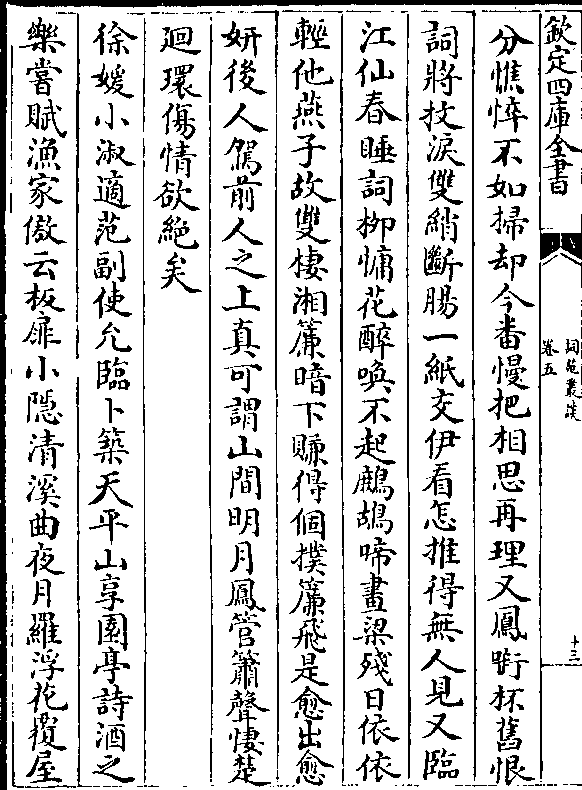 欽定四庫全書
詞苑叢談
卷五
十三
分憔悴不如掃却今番慢把相思再理又鳳銜杯舊恨
詞將扠淚雙綃斷腸一紙交伊看怎推得無人見又臨
江仙春睡詞柳慵花醉喚不起鷓鴣啼畫梁殘日依依
輕他燕子故雙棲湘簾暗下賺得個撲簾飛是愈出愈
妍後人駕前人之上真可謂山間明月鳳管簫聲悽楚
廻環傷情欲絶矣
徐媛小淑適范副使允臨卜築天平山享園亭詩酒之
樂嘗賦漁家傲云板扉小隱清溪曲夜月羅浮花攬屋